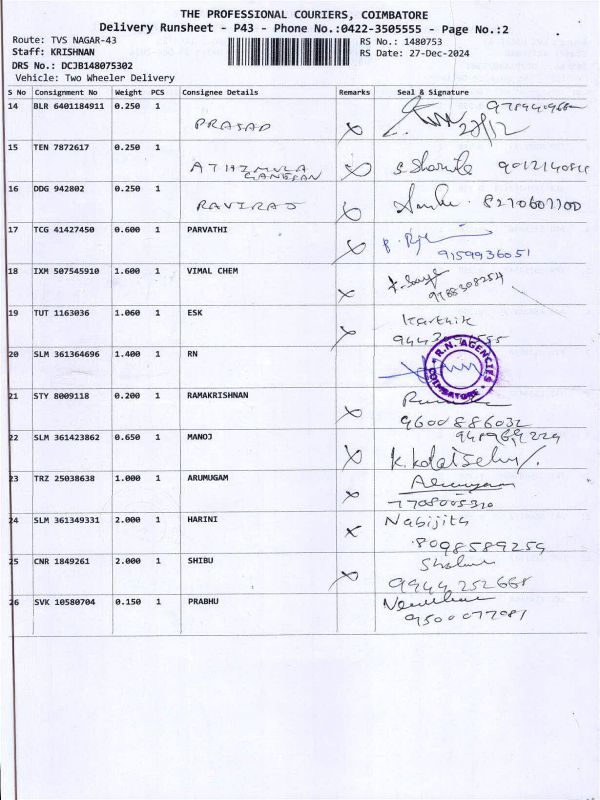 THE PROFESSIONAL COURIERS, COIMBATORE
Delivery Runsheet - P43 - Phone No.:0422-3505555 - Page No.:2
Route: TVS NAGAR-43
RS No.: 1480753
Staff: KRISHNAN
RS Date: 27-Dec-2024
DRS No.: DCJB148075302
Vehicle: Two Wheeler Delivery
S No Consignment No Weight PCS Consignee Details Remarks Seal & Signature
14 BLR 6401184911 0.250 1 PRASAD
28/12
15 TEN 7872617 0.250 1 ATHIMULA
GANESAN
16 DDG 942802 0.250 1 RAVIRAJ
8270607700
17 TCG 41427450 0.600 1 PARVATHI
9159936051
18 IXM 507545910 1.600 1 VIMAL CHEM
9788308254
19 TUT 1163036 1.060 1 ESK
Karthik
20 SLM 361364696 1.400 1 RN
R.N. AGENCIES
COIMBATORE
21 STY 8009118 0.200 1 RAMAKRISHNAN
9600886032
22 SLM 361423862 0.650 1 MANOJ
23 TRZ 25038638 1.000 1 ARUMUGAM
Arumugam
7708005310
24 SLM 361349331 2.000 1 HARINI
8098589259
25 CNR 1849261 2.000 1 SHIBU
9944252668
26 SVK 10580704 0.150 1 PRABHU
9500077081